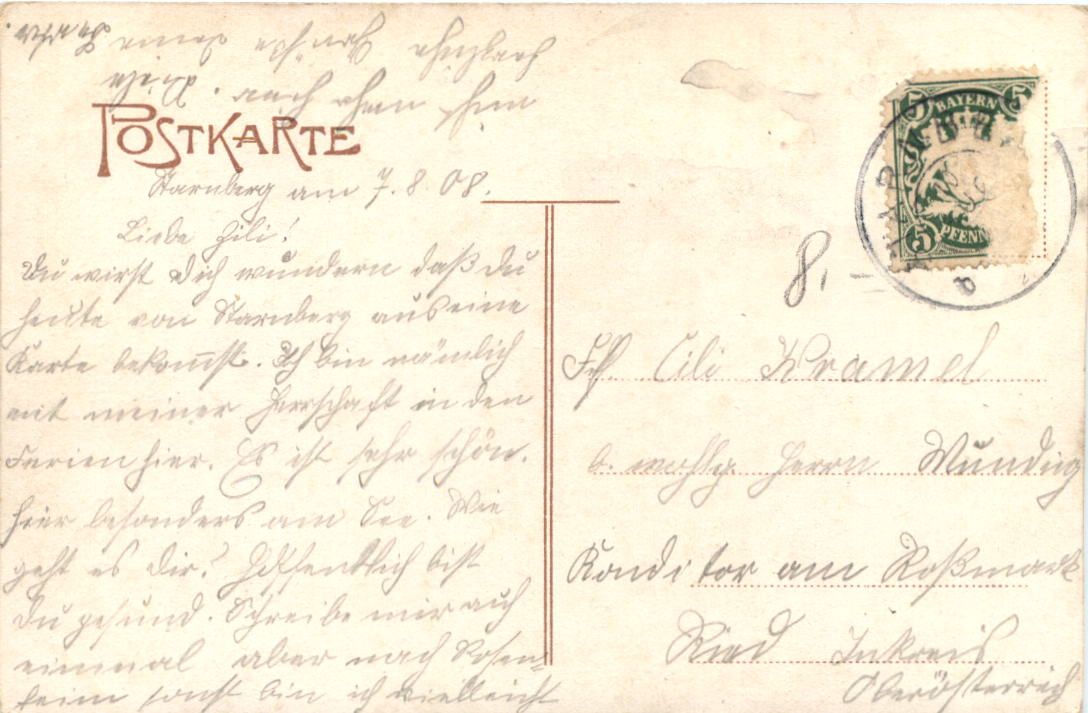 POSTKARTE
Starnberg am 7.8.08.
Liebe Zili!
Du wirst Dich wundern daß du
heute von Starnberg aus eine
Karte bekomst. Ich bin nämlich
mit meiner Herrschaft in den
Ferien hier. Es ist sehr schön.
hier besonders am See. Wie
geht es dir? Hoffentlich bist
du gesund. Schreibe mir auch
einmal aber nach Rosen-
heim sonst bin ich vielleicht
nicht mehr hier.
BAYERN
5 5
5 PFENN
b
8.
Frl. Cili Kramel
b. Herrn
Konditor am Roßmarkt
Ried Innkreis
Oberösterreich